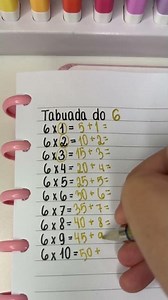 Tabuada do 6
6 x 1 = 5 + 1 =
6 x 2 = 10 + 2 =
6 x 3 = 15 + 3 =
6 x 4 = 20 + 4 =
6 x 5 = 25 + 5 =
6 x 6 = 30 + 6 =
6 x 7 = 35 + 7 =
6 x 8 = 40 + 8 =
6 x 9 = 45 + 9
6 x 10 = 50 +